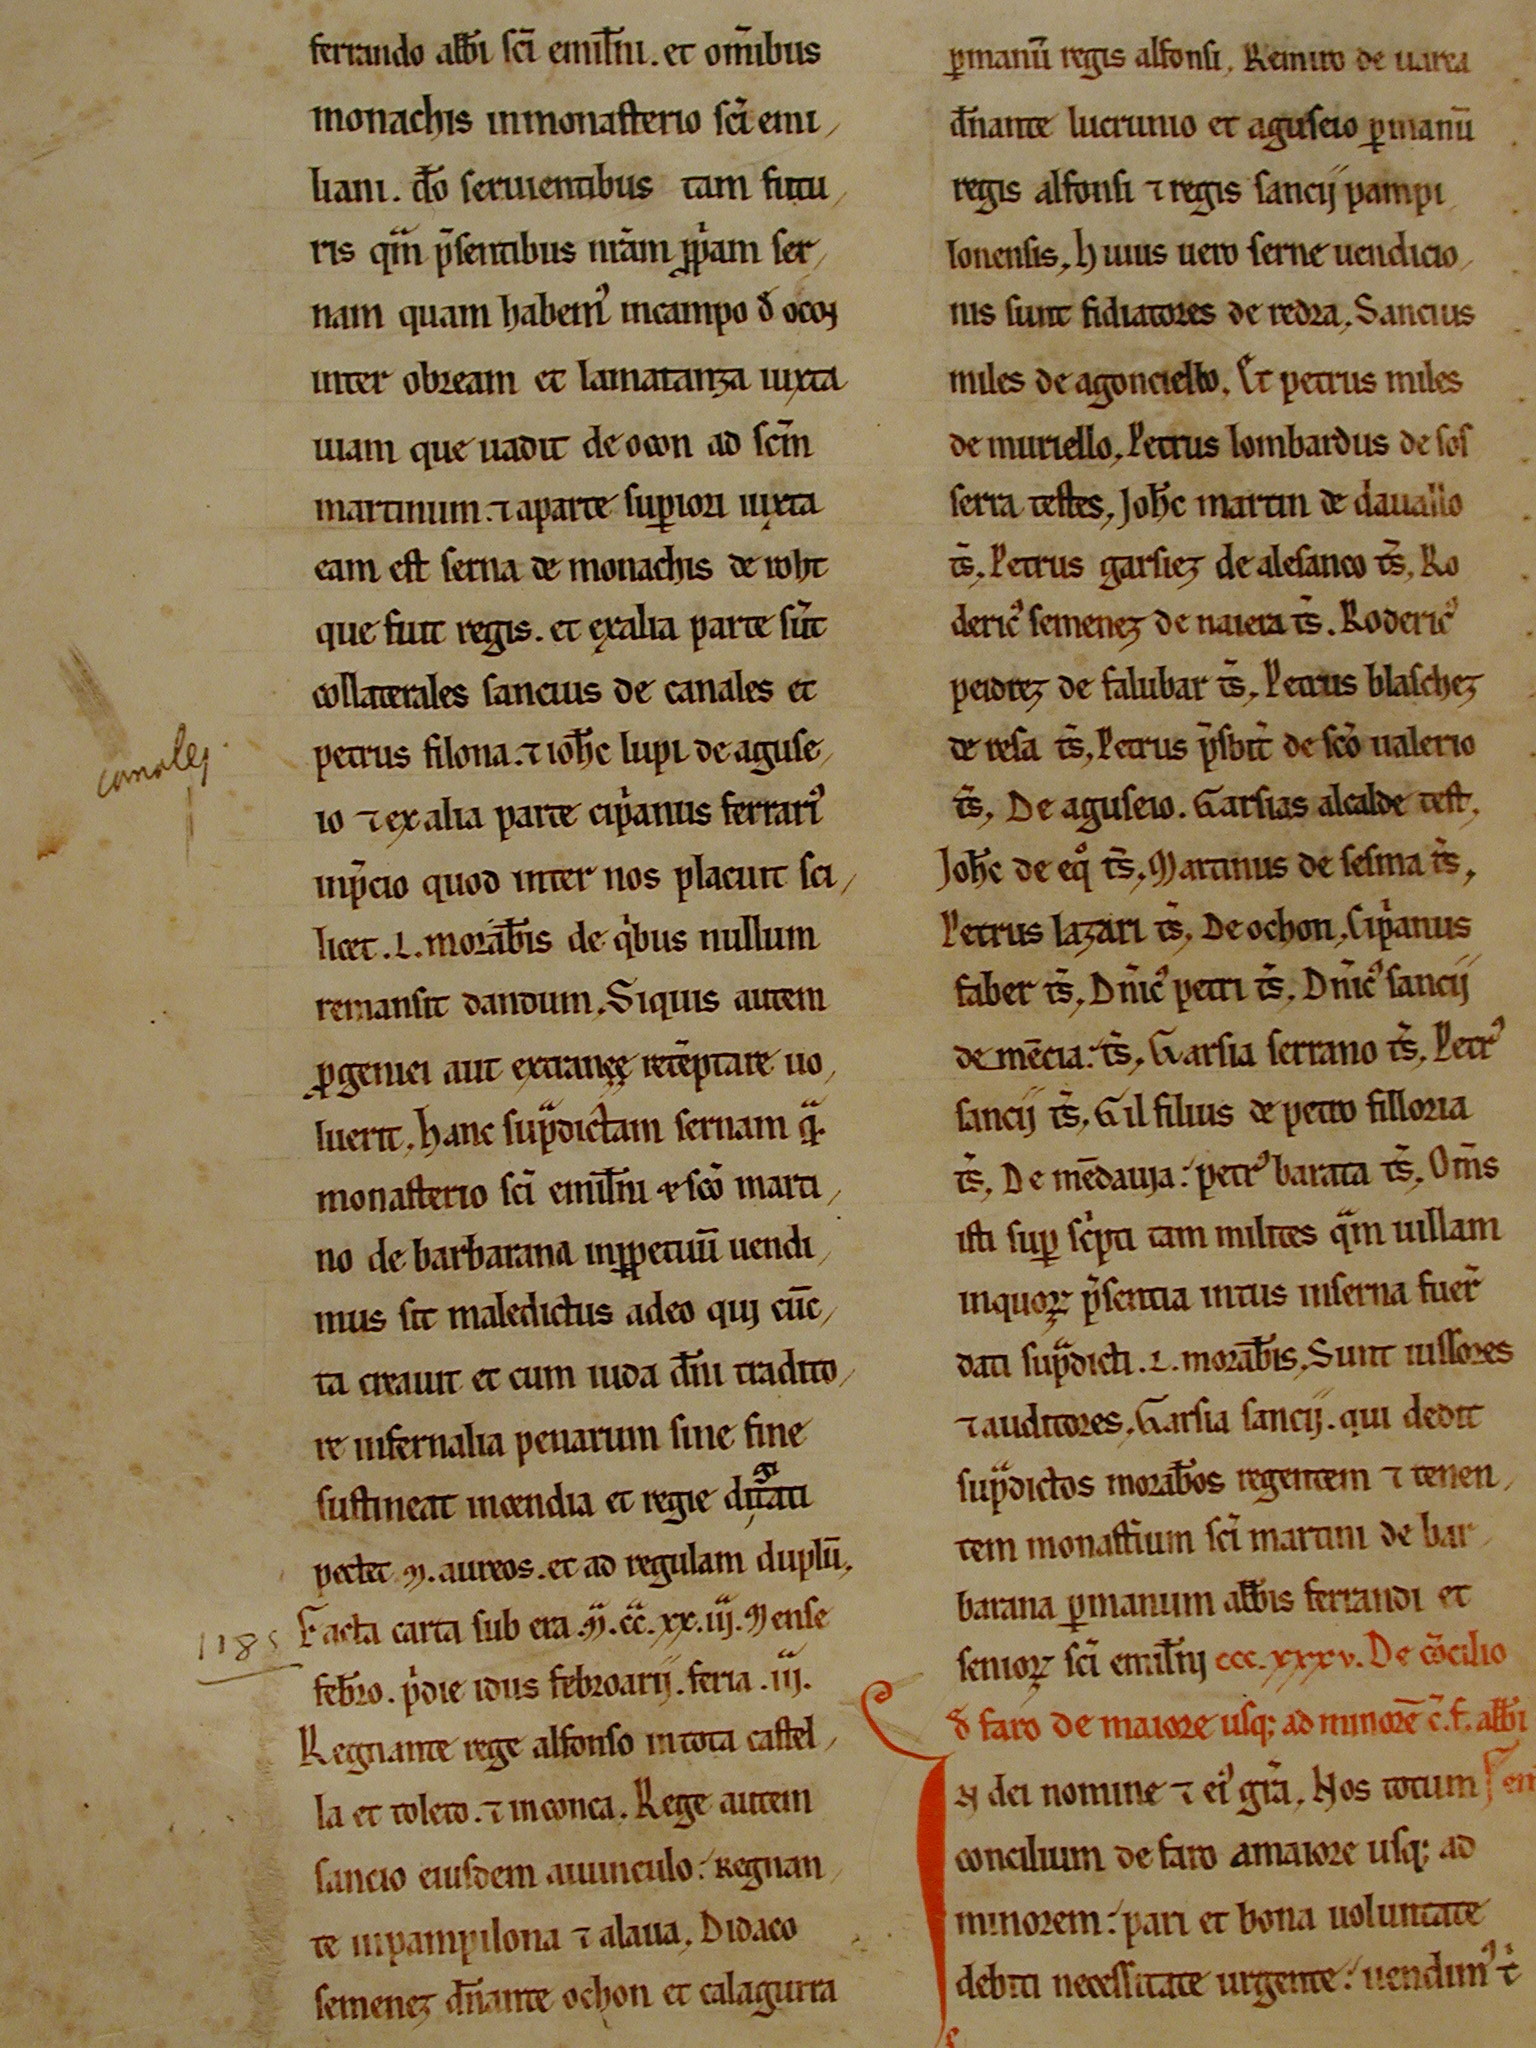 ferrando abb̄i sc̄i emil̄ni. et om̄ibus
monachis in monasterio sc̄i emi
liani. d̄o seruientibus tam futu
ris qm̄ p̄sentibus nr̄am ꝓpͥam ser
nam quam habemꝰ in campo ð ocoɟ
inter obream et la matanza iuxta
uiam que uadit de ocon ad sc̄m
martinum. ⁊ a parte suꝑiori iuxta
eam est serna de monachis de roht
que fuit regis. et ex alia parte sūt
collaterales sancius de canales et
petrus filona. ⁊ ioh̄c lupi de aguse
io ⁊ ex alia parte cipͥanus ferrariꝰ
in p̄cio quod inter nos placuit sci
licet .L. morab̄is de qͥbus nullum
remansit dandum. Siquis autem
ꝓgeniei aut extranęę retēptare uo
luerit, hanc supᵃdictam sernam qᵃ.
monasterio sc̄i emil̄ni ⁊ sc̄o marti
no de barbarana in ꝑpetuū uendi
mus sit maledictus a deo qui cūc
ta creauit et cum iuda dn̄i tradito
re infernalia penarum sine fine
sustineat incendia et regie
pectet .M. aureos. et ad regulam duplū.
Facta carta sub era .M̄. cc̄. xx. iij. Mense
feb̄ro. pͥdie idus febroarij. feria .iiij.
Regnante rege alfonso in tota castel
la et toleto. ⁊ in conca. Rege autem
sancio eiusdem auunculo: Regnan
te in pampilona ⁊ alaua. Didaco
semenez dn̄ante ochon et calagurra
canales
1185
ꝑ manū regis alfonsi. Remiro de uarea
dn̄ante lucrunio et aguseio ꝑ manū
regis alfonsi ⁊ regis sancij pampi
lonensis. huius uero serne uendicio
nis sunt fidiatores de redra. Sancius
miles de agonciello. Et petrus miles
de muriello. Petrus lombardus de sos
serra testes. Joh̄c martin de dauallo
t̄s. Petrus garsiez de alesanco t̄s. Ro
dericꝰ semenez de naiera t̄s. Rodericꝰ
peidrez de falubar t̄s. Petrus blaschez
de resa t̄s. Petrus p̄sbit̄ de sc̄o ualerio
t̄s. De aguseio. Garsias alcalde test.
Joh̄c de eqͦ t̄s. Martinus de sesma t̄s.
Petrus lazari t̄s. De ochon. Cipͥanus
faber t̄s. Dn̄icꝰ petri t̄s. Dn̄icꝰ sancij
de mēcia: t̄s. Garsia serrano t̄s. Petrꝰ
sancij t̄s. Gil filius de petro filloria
t̄s. De mēdauja: petrꝰ barata t̄s. Om̄s
isti suꝑ scͥpti tam milites qᵃm uillam
in quoꝝ p̄sentia intus in serna fuer̄
dati supᵃdicti .L. morab̄is. Sunt iussores
⁊ auditores. Garsia sancij. qui dedit
supᵃdictos morab̄os regentem ⁊ tenen
tem monast̄ium sc̄i martini de bar
barana ꝑ manum abb̄is ferrandi et
senioꝝ sc̄i emil̄nj ccc. xxxv. De cōcilio
ð faro de maiore usq; ad minorē c̄. f. abb̄i
In dei nomine ⁊ eiꝰ gr̄a. Nos totum
concilium de faro a maiore usq; ad
minorem: pari et bona uoluntate
debiti necessitate urgente: uendimꝰ tͥ